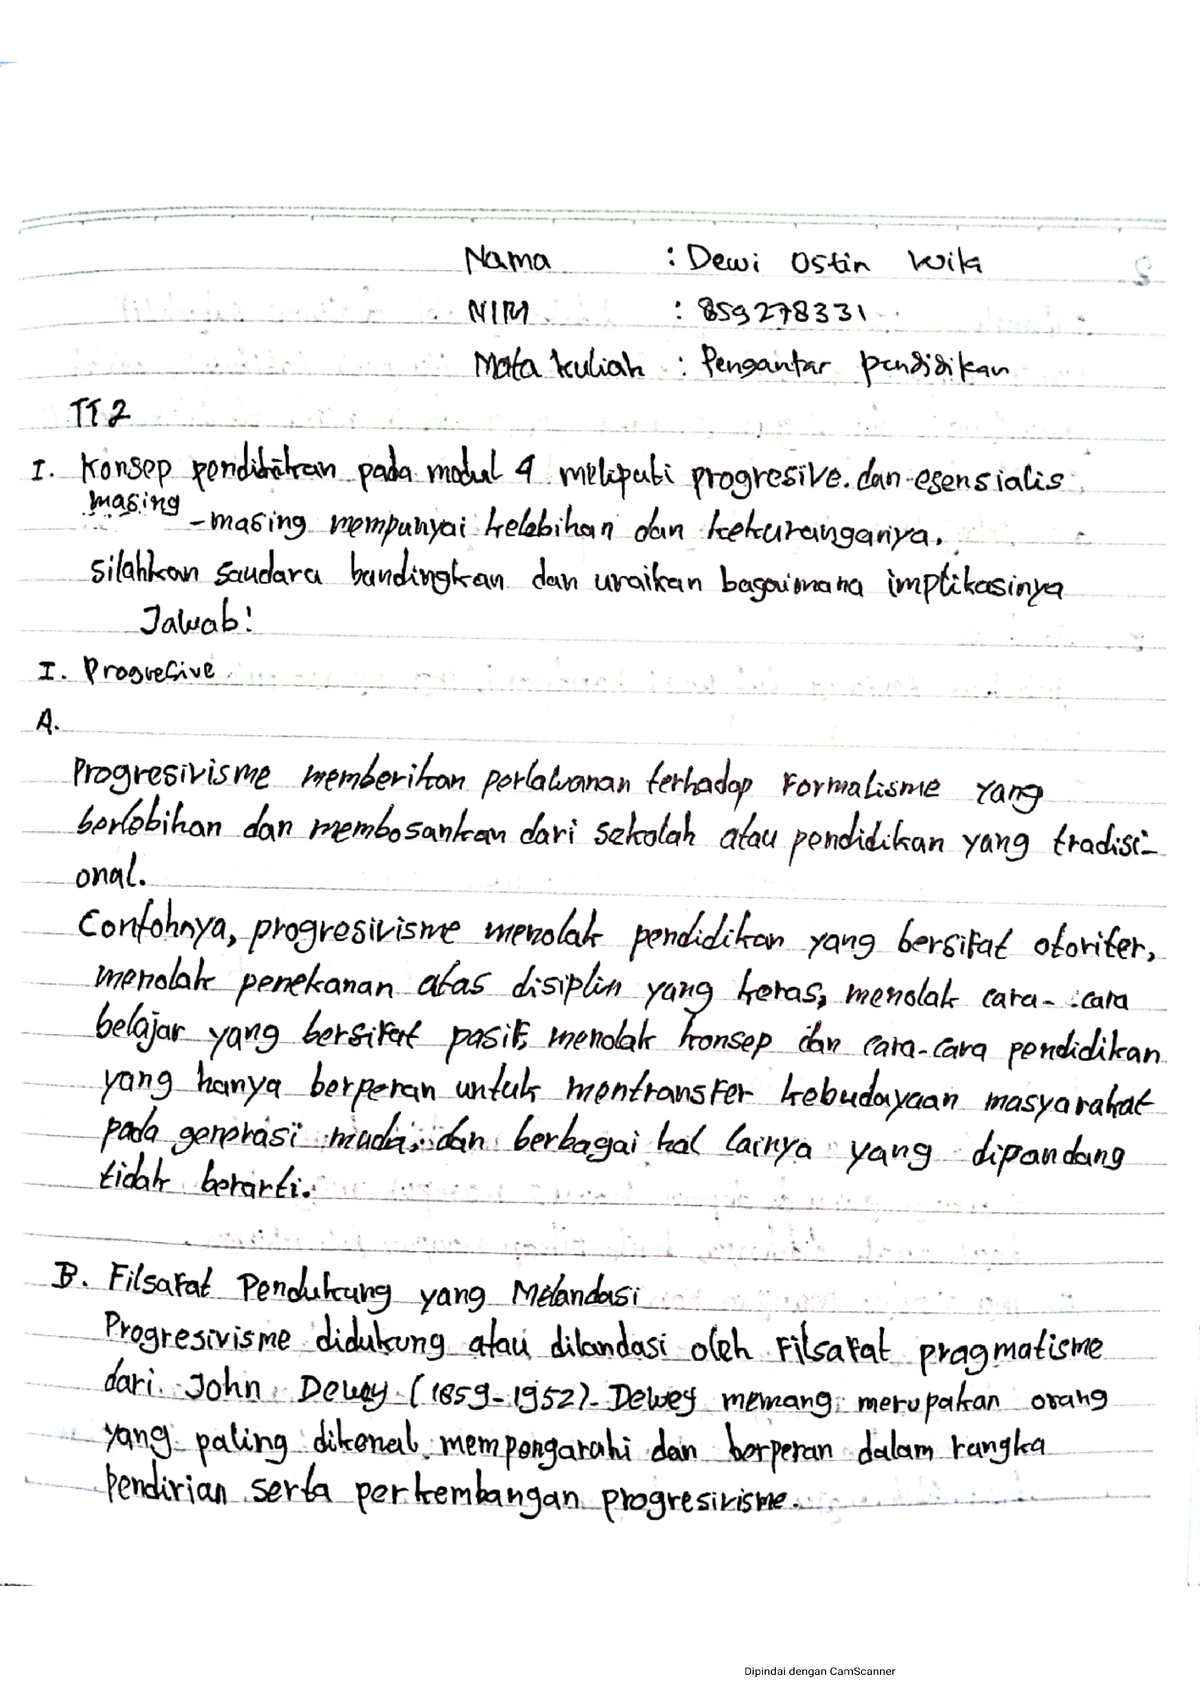 Nama : Dewi Ostin Wika
NIM : 859278331
Mata kuliah : Pengantar pendidikan
TT 2
I. Konsep pendidikan pada modul 4 meliputi progresive dan esensialis
masing
-masing mempunyai kelebihan dan kekuranganya.
silahkan saudara bandingkan dan uraikan bagaimana implikasinya
Jawab!
I. Progresive
A.
Progresivisme memberikan perlawanan terhadap Formalisme yang
berlebihan dan membosankan dari sekolah atau pendidikan yang tradisi-
onal.
Contohnya, progresivisme menolak pendidikan yang bersifat otoriter,
menolak penekanan atas disiplin yang keras, menolak cara-cara
belajar yang bersifat pasif, menolak konsep dan cara-cara pendidikan
yang hanya berperan untuk mentransfer kebudayaan masyarakat
pada generasi muda, dan berbagai hal lainya yang dipandang
tidak berarti.
B. Filsafat Pendukung yang Melandasi
Progresivisme didukung atau dilandasi oleh Filsafat pragmatisme
dari John Dewey (1859-1952). Dewey memang merupakan orang
yang paling dikenal mempengaruhi dan berperan dalam rangka
pendirian serta perkembangan progresivisme.
Dipindai dengan CamScanner